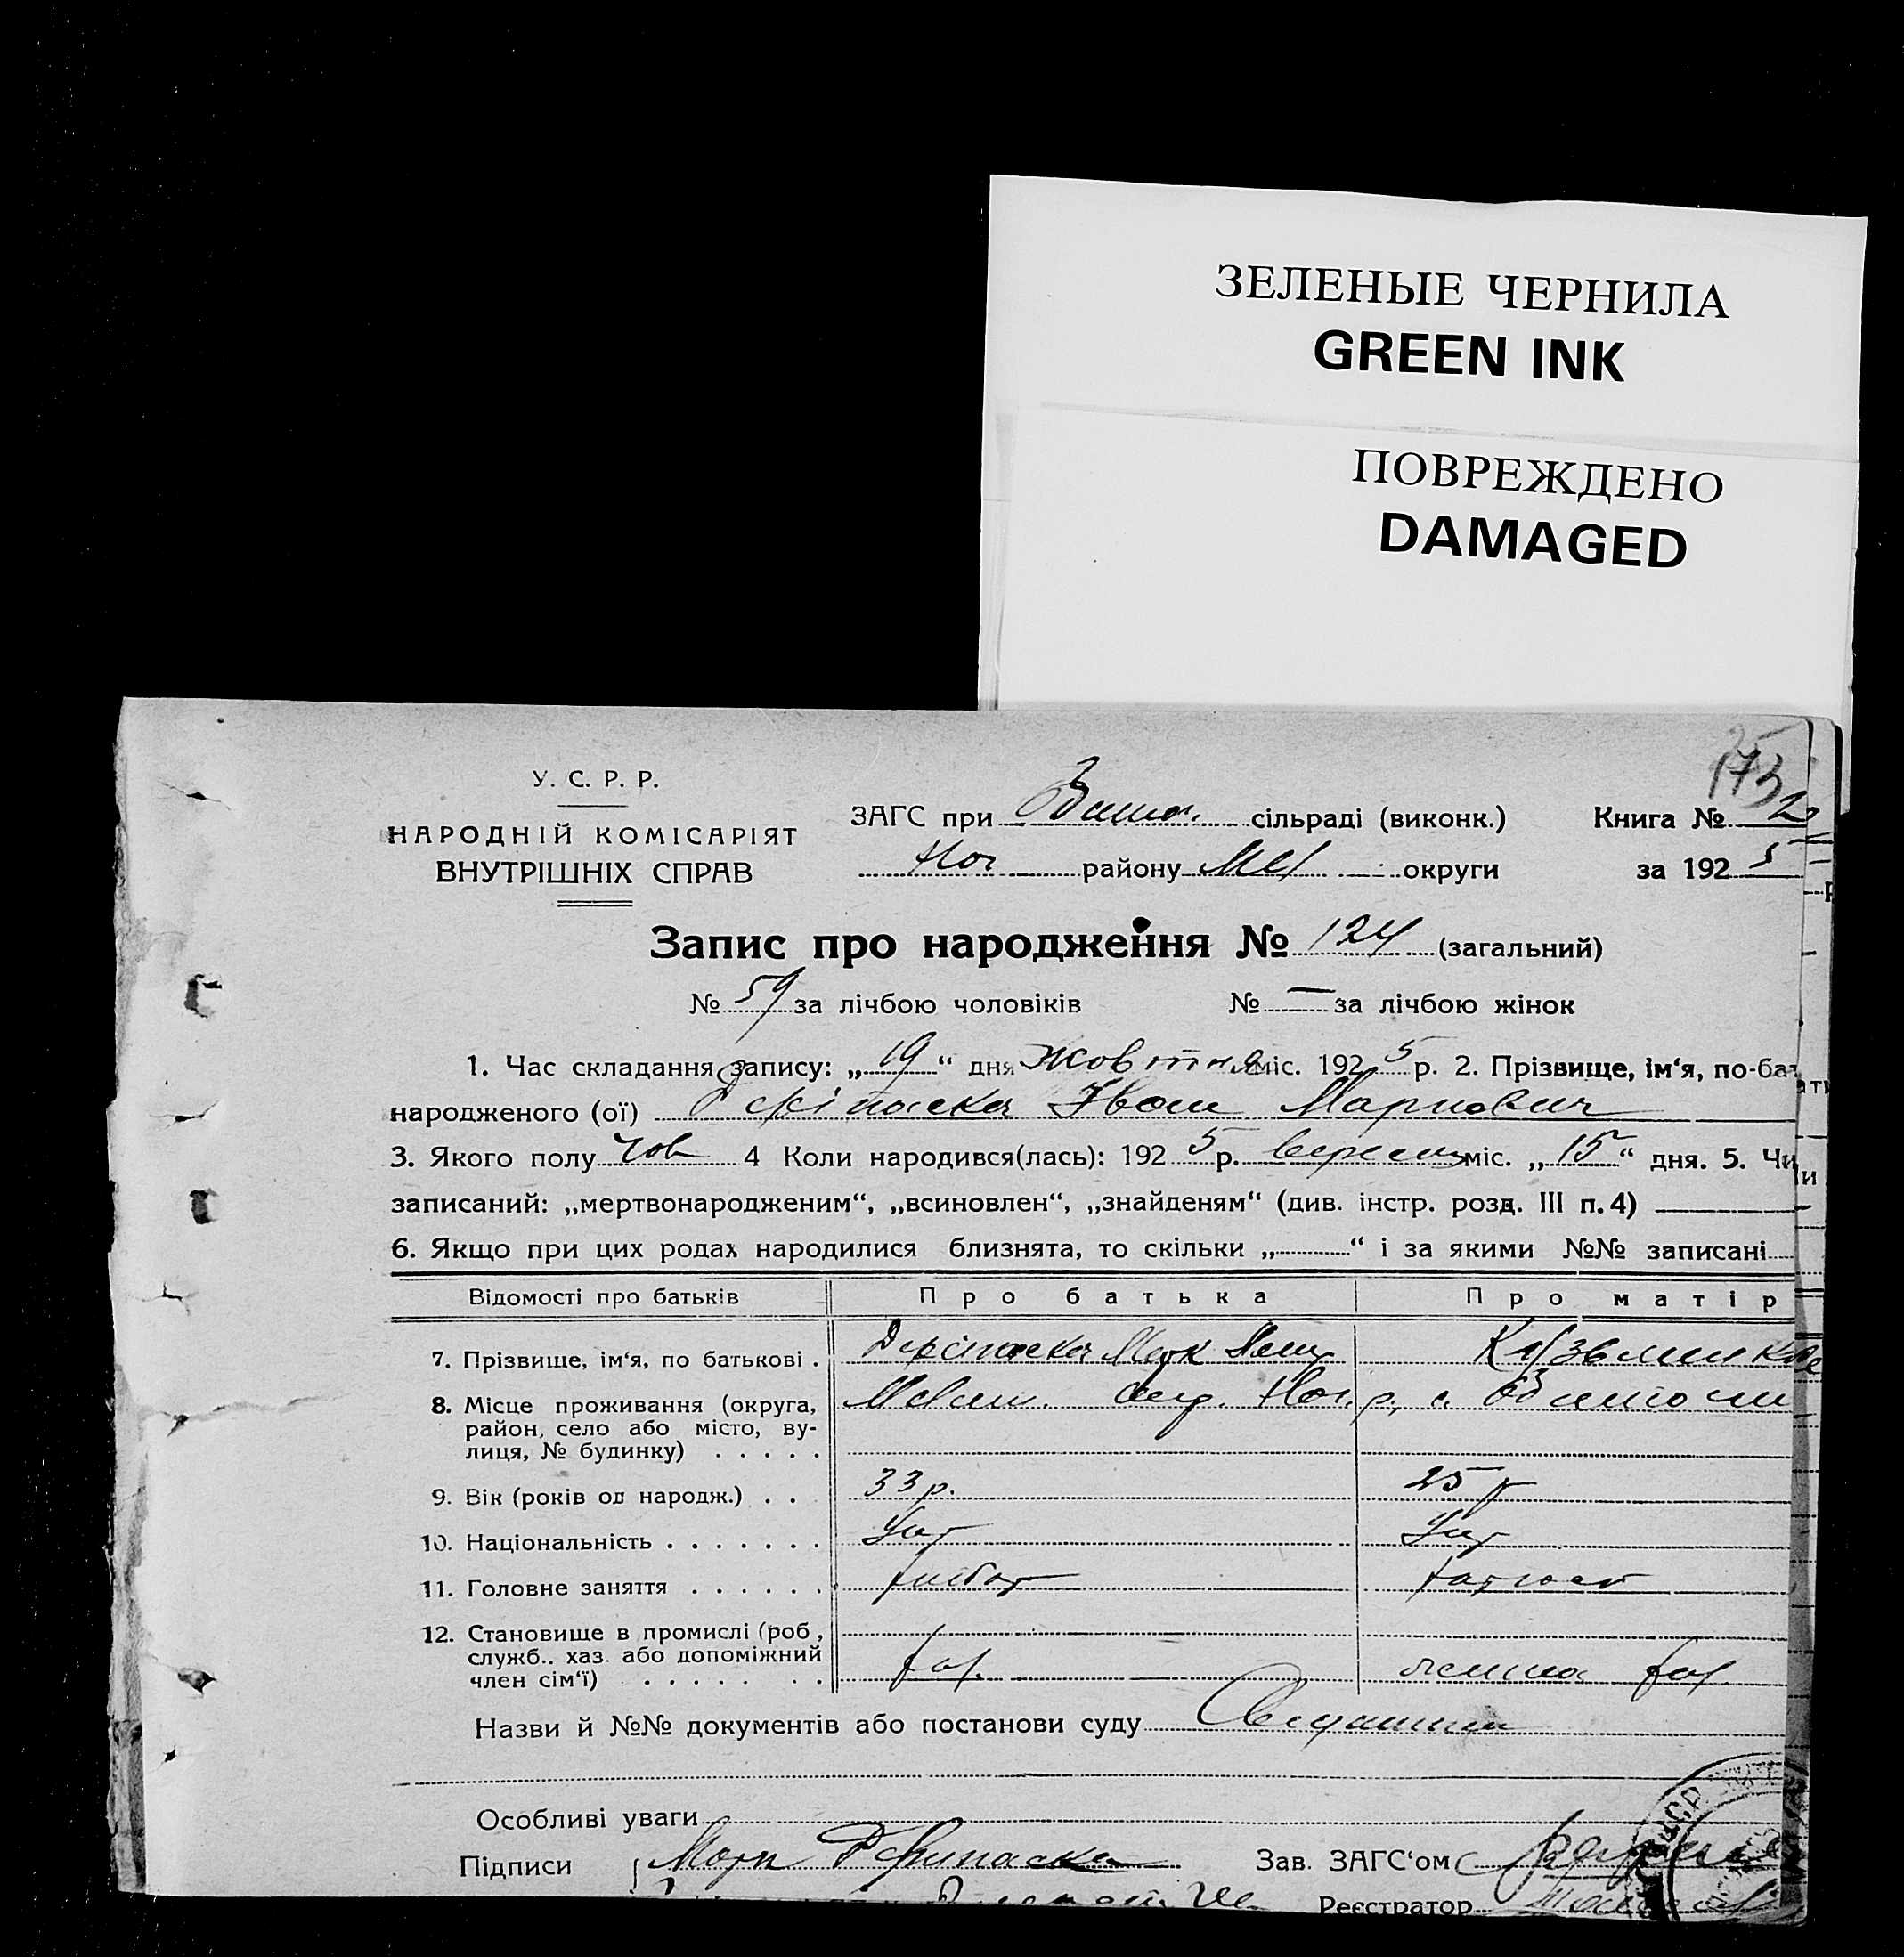 ЗЕЛЕНЫЕ ЧЕРНИЛА
GREEN INK
ПОВРЕЖДЕНО
DAMAGED
173
У. С. Р. Р.
НАРОДНІЙ КОМІСАРІЯТ
ВНУТРІШНІХ СПРАВ
ЗАГС при сільраді (виконк.) Книга №
Ног району Мел округи за 1925
Запис про народження № 124 (загальний)
№ 59 за лічбою чоловіків № — за лічбою жінок
1. Час складання запису: „19“ дня жовтня міс. 1925 р. 2. Прізвище, ім‘я, по-бат
народженого (ої) Деріпаска Іван Маркович
3. Якого полу чов 4 Коли народився(лась): 1925 р. вересня міс. „15“ дня. 5. Чи
записаний: „мертвонародженим“, „всиновлен“, „знайденям“ (див. інстр. розд. III п. 4)
6. Якщо при цих родах народилися близнята, то скільки „ “ і за якими №№ записані
Відомості про батьків Про батька Про матір
7. Прізвище, ім‘я, по батькові . Деріпаска Марк
8. Місце проживання (округа, Мелит. окр. Ног. р., с.
район, село або місто, ву-
лиця, № будинку) . . . . .
9. Вік (років од народж.) . . 33 р. 25 р
10. Національність . . . . . . . Укр Укр
11. Головне заняття . . . . . . хлібор
12. Становище в промислі (роб.,
служб.. хаз. або допоміжний
член сім‘ї) . . . . . . . хаз. жінка хаз.
Назви й №№ документів або постанови суду
Особливі уваги
Підписи Марк Деріпаска Зав. ЗАГС‘ом
Реєстратор